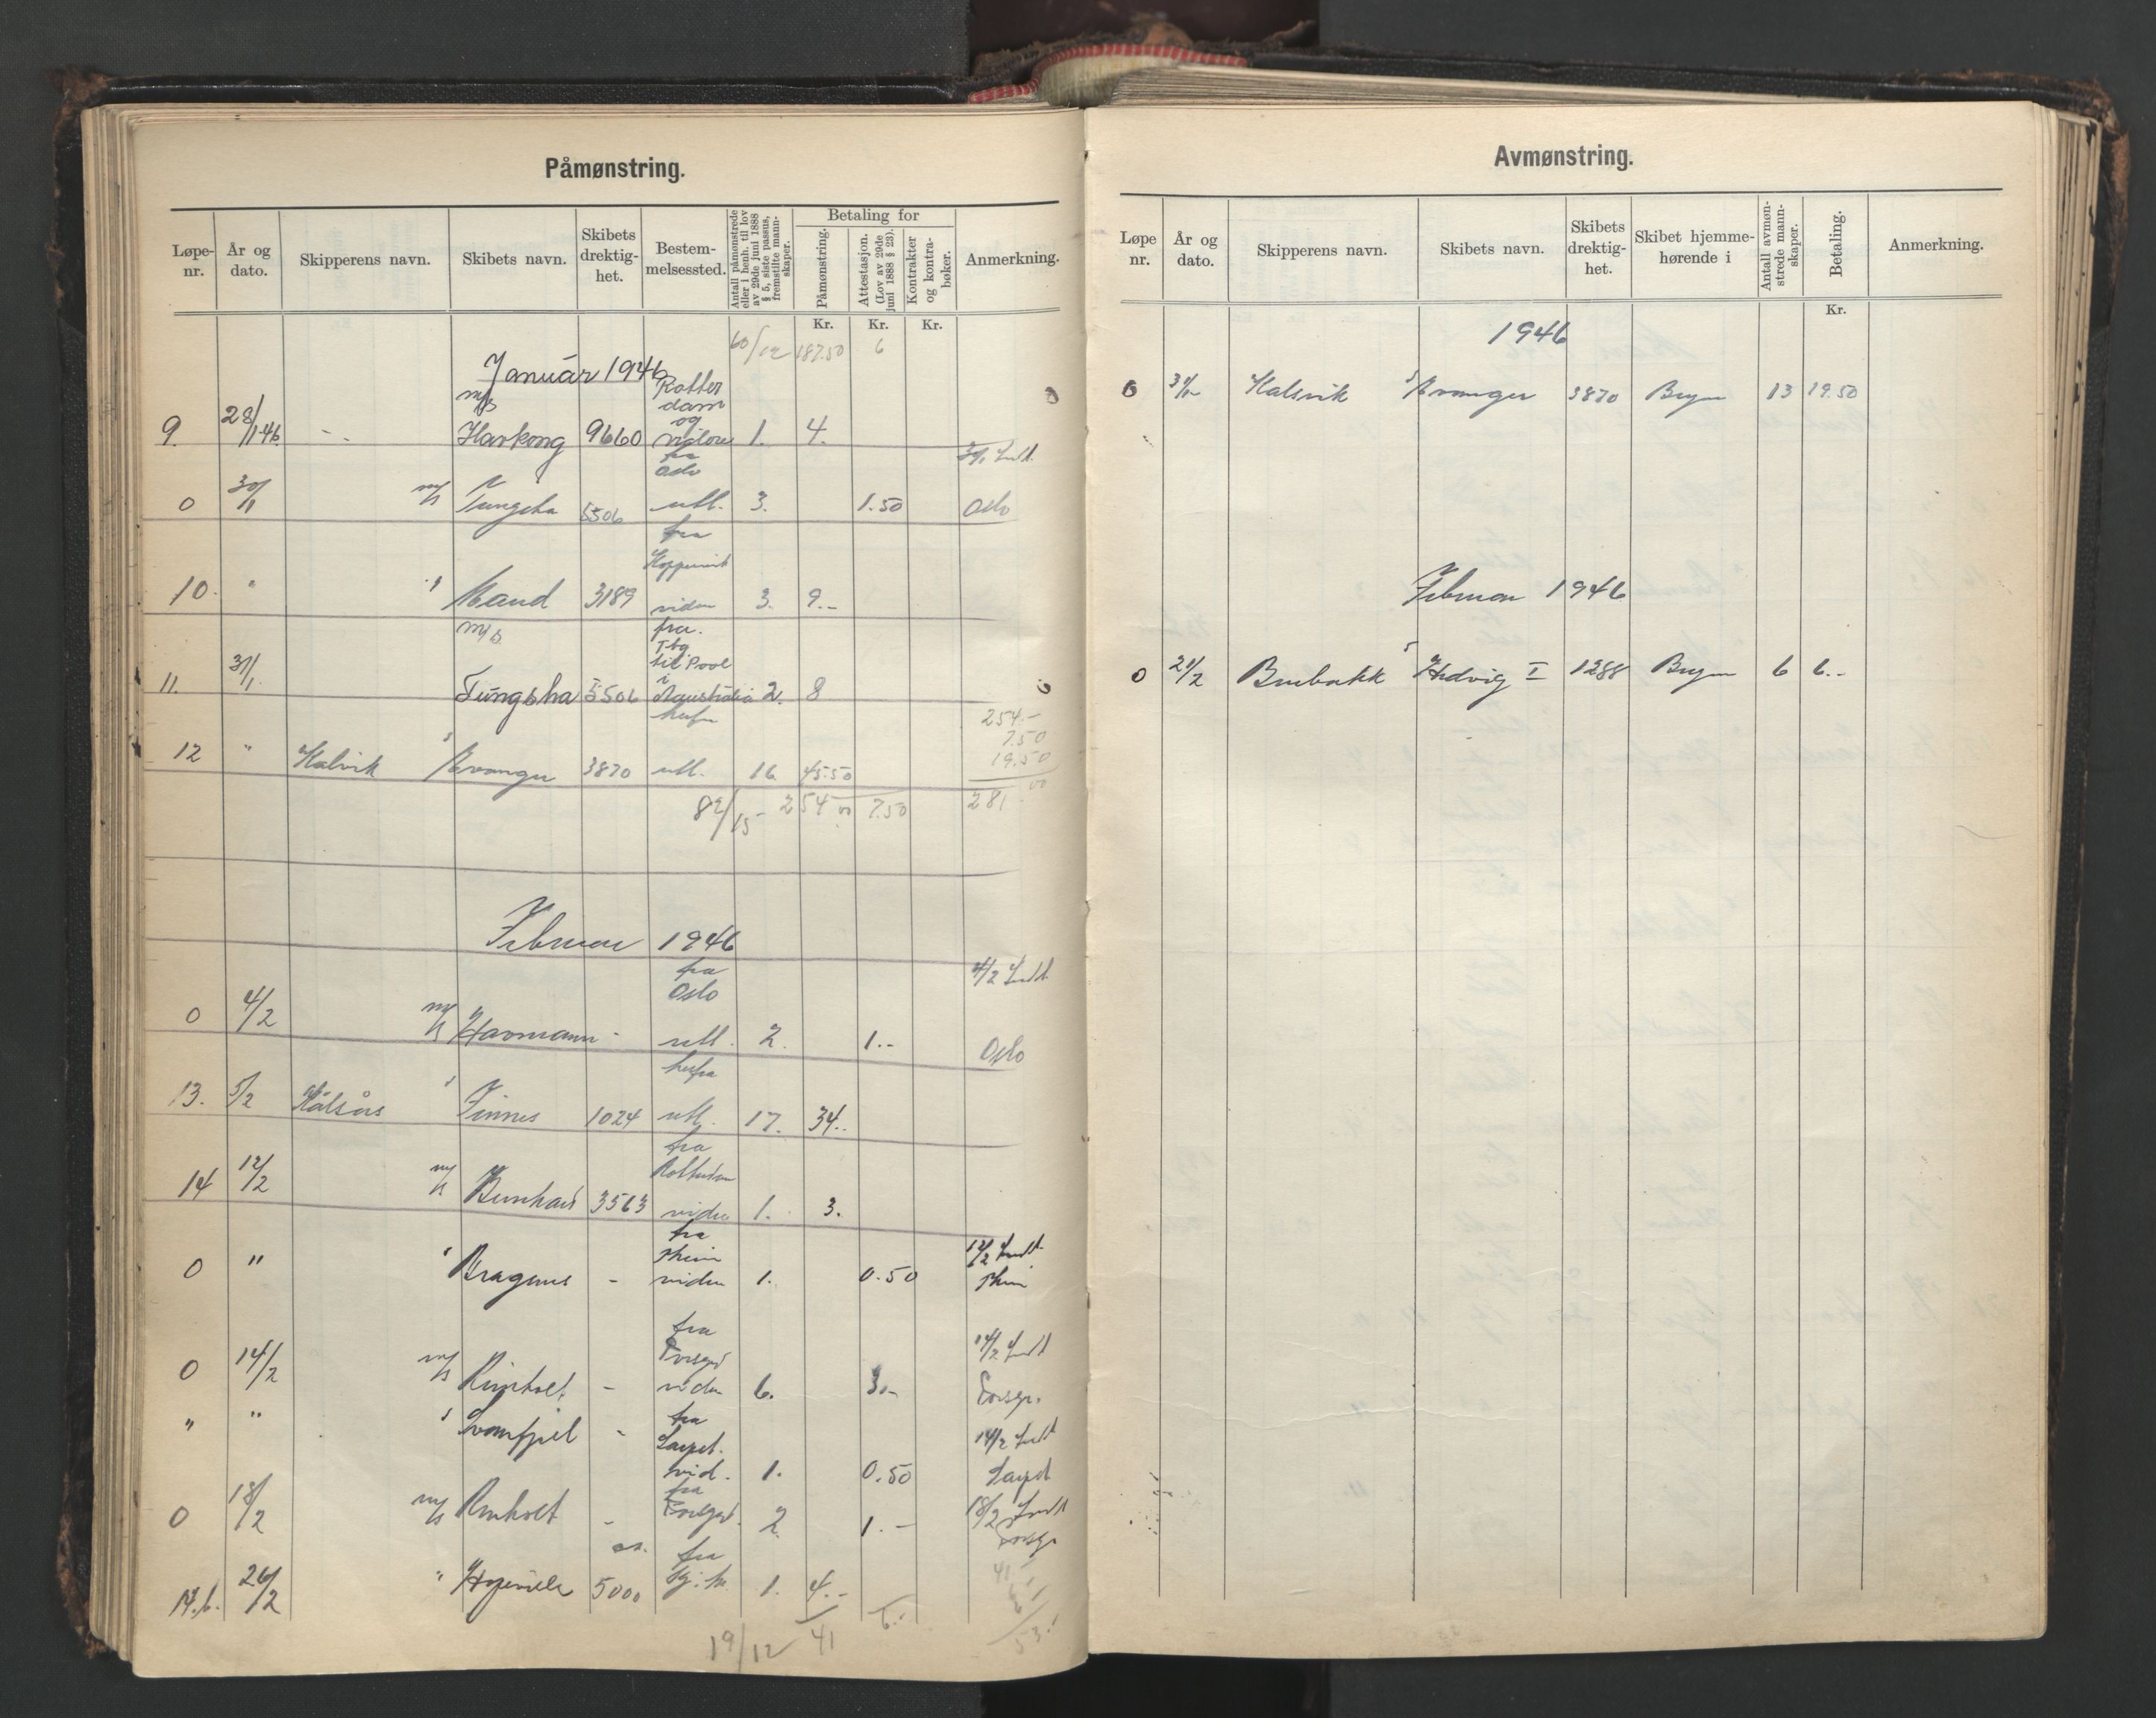 Påmønstring.
Løpe-nr. År og dato. Skipperens navn. Skibets navn. Skibets drektig-het. Bestem-melsessted. Antall påmønstrede eller i henh. til lov av 29de juni 1888 § 5, siste passus, fremstilte mann-skaper. Betaling for Påmønstring. Attestasjon. (Lov av 29de juni 1888 § 23). Kontrakter og kontra-bøker. Anmerkning.
Kr. Kr. Kr.
60/12 187.50 6
Januar 1946
9. 28/1 46. - m/s Havkong 9660 Rotterdam og videre 1. 4.
0 30/1 m/s Tungsha 5506 fra Oslo utl. 3. 1.50 Oslo
10. " s Maud 3189 fra viden 3. 9.-
11. 31/1. m/s Tungsha 5506 fra. Tbg til Pool i Australia 2. 8
254.-
7.50
19.50
12 " Halvik s Evanger 3870 herfra utl. 16 45.50
82/15 254 00 7.50 281.00
Februar 1946
0 4/2 m/s Havmann - fra Oslo utl. 2. 1.- 4/2 Oslo
13. 5/2 Hålsås s Finnes 1024 herfra utl. 17. 34..
14 12/2 m/s Bernhard 3563 fra Rotterdam viden 1. 3.
0 " s Bragenes - fra Thеim viden 1. 0.50 12/2
0 14/2 m/s Rimholt - fra viden 6. 3.- 14/2
" " s Svanfjell - fra vid. 1. 0.50 14/2
0 18/2 m/s Rimholt - fra 2. 1.- 18/2
14.b. 26/2 " Høpeville ca. 5000 fra 1. 4.-
19/12 41 6.-
41.-
53.-
Avmønstring.
Løpe nr. År og dato. Skipperens navn. Skibets navn. Skibets drektig-het. Skibet hjemme-hørende i Antall avmøn-strede mann-skaper. Betaling. Anmerkning.
Kr.
1946
0 31/1 Halsvik s Evanger 3870 Bergen 13 19.50
Februar 1946
0 21/2 Brubakk s Hedvig I 1288 Bergen 6 6.-